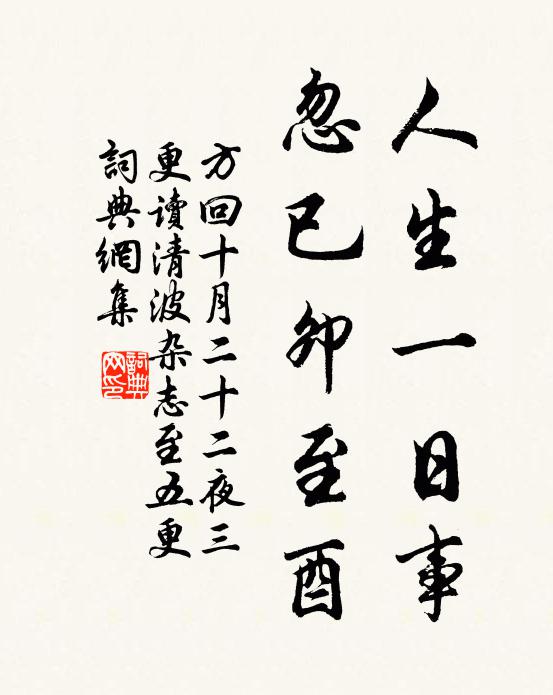 人生一日事
忽已卯至酉
方回十月二十二夜三
更讀清波杂志至五更
詞典網集
詞典网印